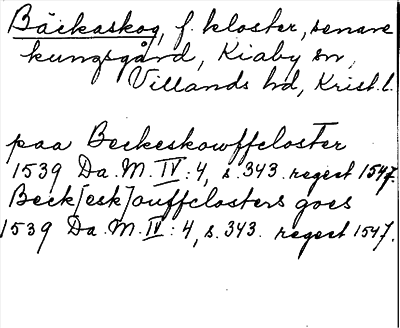 Bäckaskog, f. kloster, senare
kungsgård, Kiaby sn,
Villands hd, Krist. l.
paa Beckeskowffcloster
1539 Da. M. IV: 4, s. 343. regest 1547.
Beck[esk]ouffclosters goes
1539 Da. M. IV: 4, s. 343. regest 1547.